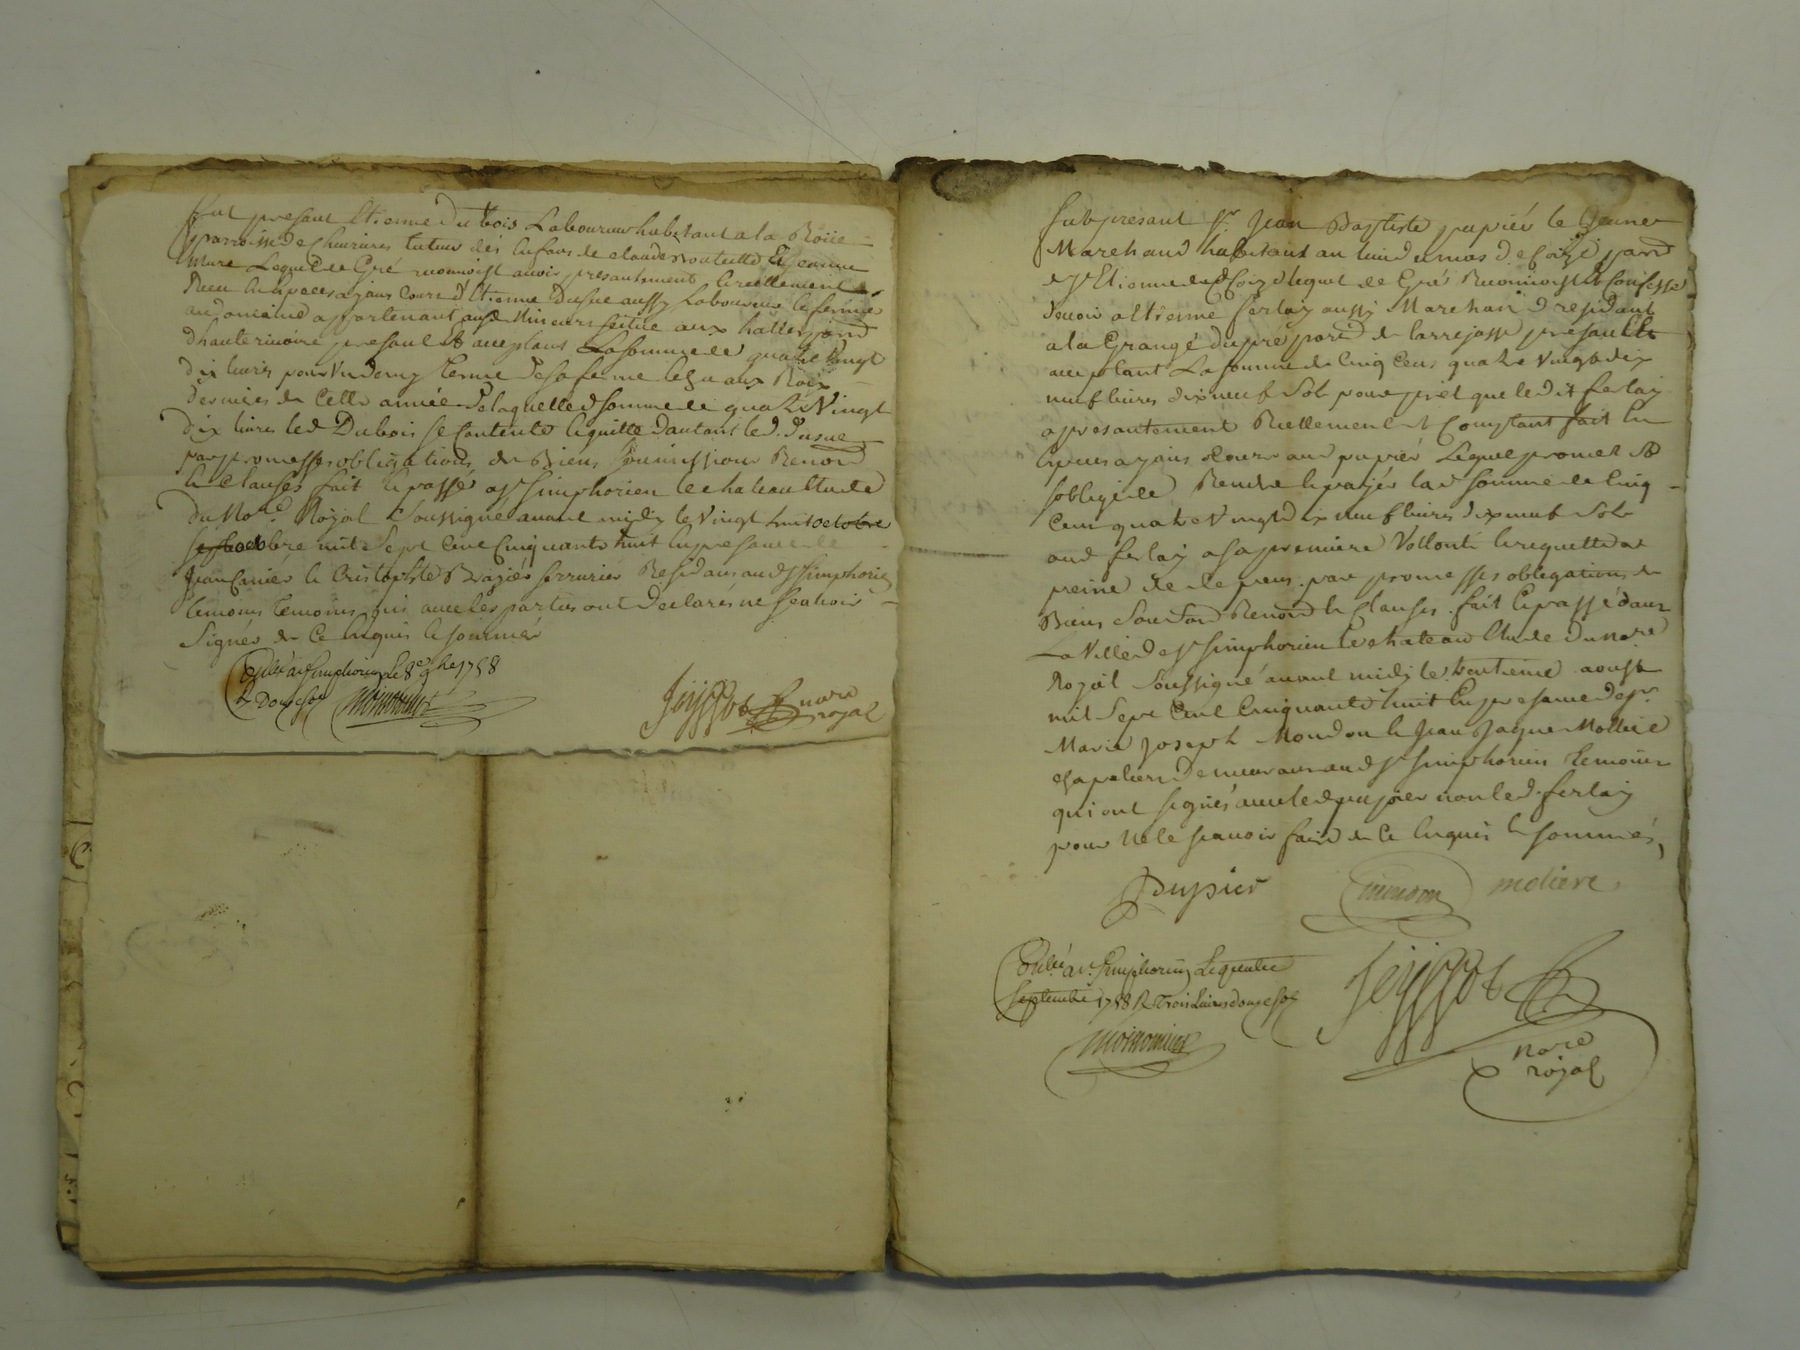 fut presant Etienne Dubois Laboureur habitant a la Roüe
parroisse de Chevrieres tuteur des enfans de claude et Jeanne
Mure Lequel de Gré reconnoist avoir presantement et reellement
Receu en especes ayans cours d'Etienne Dusue aussy Laboureur et fermier
au domaine appartenant auxd. Mineurs scitué aux halles parr.
d'haute rivoire presant et acceptant La somme de quatre Vingt
dix livres pour un demy terme de sa ferme echu aux Rois
derniers de Cette année De laquelle somme de quatre Vingt
Dix livres led Dubois se contente et quitte d'autant led. Dusue
par promesses obligations de Biens soumissions Renon
et Clauses fait et passé a st simphorien le chateau Etude
Du No.re Royal soussigné avant midy le Vingt huit octobre
octobre mil Sept Cent Cinquante huit en presance de
Jean et Cristophle Brazier serrurier Residans aud st simphorien
temoins temoins qui avec les parties ont declarés ne scavoir
Signer de Ce enquis et sommés
Con.lé a st Simphorien Le 8e 9bre 1758
R Douze sols
no.re
royal
fut presant Sr. Jean Baptiste pupier le Jeune
Marchand habitant au lieu du mas de Coize parr
de st Etienne de Coize lequel de Gré Reconnoist et Confesse
devoir a Etienne ferlay aussi Marchand residant
a la Grange du pré par.d de larrajasse presant et
acceptant La somme de Cinq Cens quatre Vingt dix
neuf livres dix neuf Sols pour prêt que ledit ferlay
a presantement Reellement et Comptant fait en
especes ayans cours aud pupier Lequel promet et
s'oblige de Rendre et payer lad somme de Cinq
Cens quatre Vingt dix neuf livres dix neuf Sols
aud ferlay a sa premiere Vollonté et requette a
peine de depens par promesses obligations de
Biens Soum Son Renon et Clauses fait et passé dans
La Ville de st simphorien le chateau Etude du no.re
Royal Soussigné avant midy le trentieme aoust
mil Sept Cent Cinquante huit en presance de Sr.
Marie Joseph Mondon et Jean Jaque Molliere
chapeliers Demeurans aud st simphorien temoins
qui ont signés avec led pupier non led. ferlay
pour Ne le scavoir faire de Ce enquis et sommés,
pupier mondon moliere
Con.lé a st. Simphorien Le quatre
septembre 1758 R Trois Livres douze sols
no.re
royal